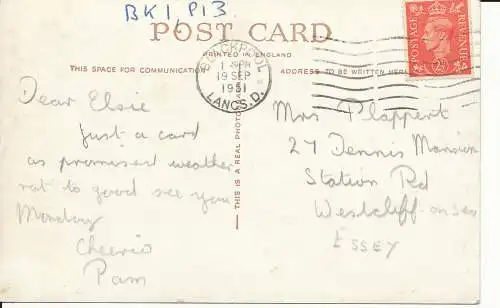 BK1, P13
POST CARD
PRINTED IN ENGLAND
THIS SPACE FOR COMMUNICATION
ADDRESS TO BE WRITTEN HERE
BLACKPOOL
19 SEP
1951
LANCS.D.
POSTAGE
REVENUE
THIS IS A REAL PHOTOGRAPH
Dear Elsie
Just a card
as promised weather
not to good see you
Monday
Cheerio
Pam
Mrs Plappert
27 Dennis Mansion
Station Rd
Westcliff-on-Sea
ESSEY